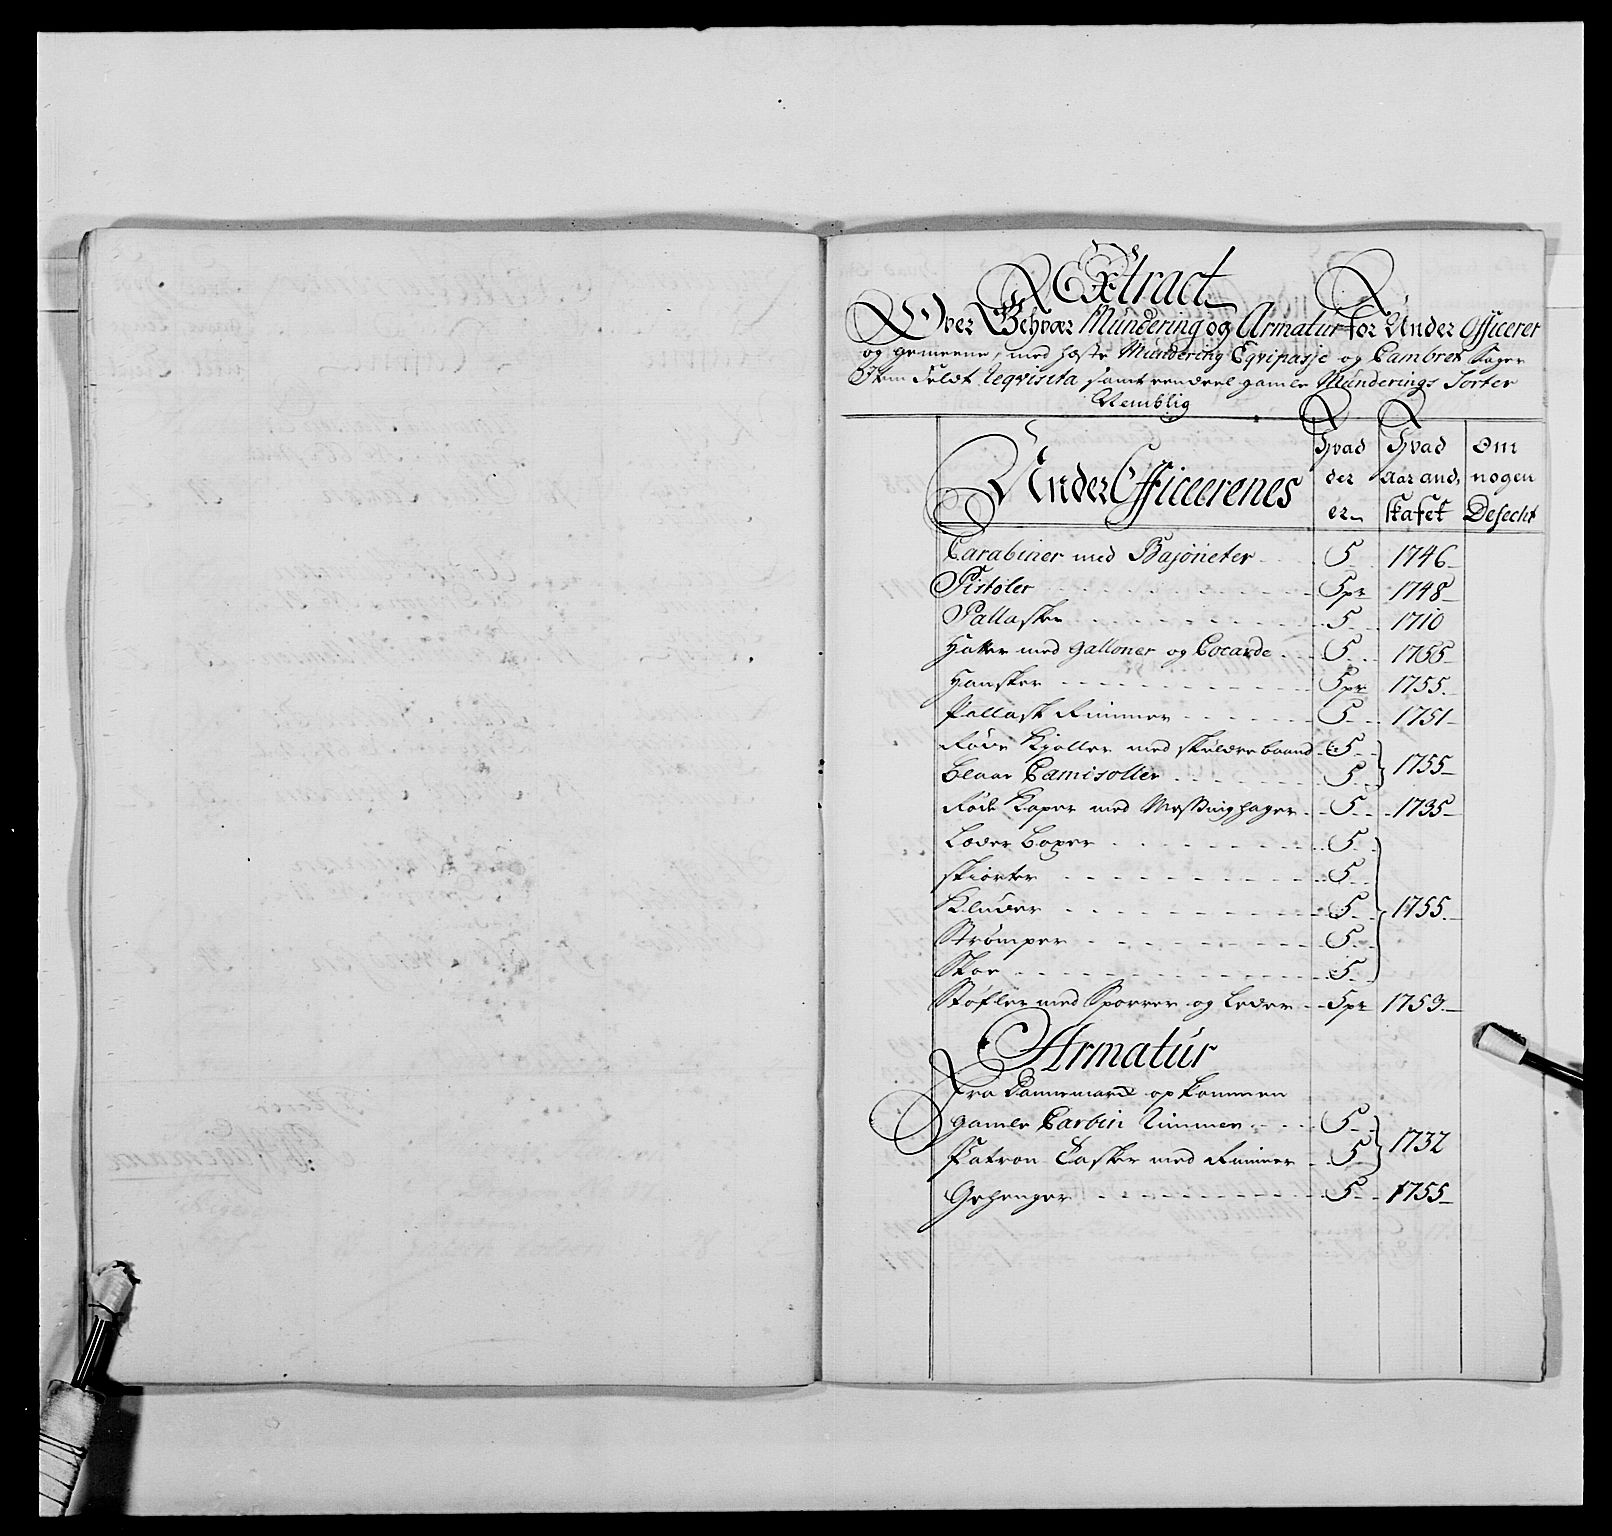 Extract
Over Gehvær Mundering og Armatur for Under Officerer
og gemeene, med hæste Mundering Eqvipasje og Cambret Sager
Item Feldt Reqvisita samt eendeel gamle Munderings Sorter
Nemblig
Under Officeerenes
Hvad der er
Hvad aar and, skafet
Om nogen Defecht
Carabiner med Bajonetter 5 1746
Pistoler 5 pr 1748
Pallasker 5 1710
Hatter med galloner og Cocarde 5 1755
Hansker 5 pr 1755
Pallask Rimmer 5 1751
Røde Kjoller med skulderbaand 5
Blaae Camisoller 5 1755
Røde Kaper med Messinghager 5 1735
Læder Boxer 5
Skiorter 5
Kluder 5 1755
Strømper 5
Skoe 5
Støfler med Sporrer og Leder 5 pr 1753
Armatur
Fra Dannemarck opkommen
gamle Carbin Rimmer 5
Patron Tasker med Rimmer 5 1732
Gehenger 5 1755